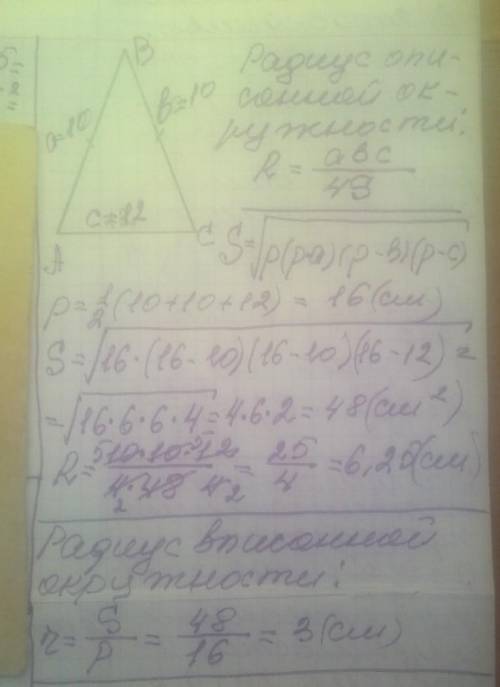 B
a=10
b=10
c=12
A
C
Радиус опи-
санной ок-
ружности:
R = abc / 4S
S=√p(p-a)(p-b)(p-c)
p=1/2(10+10+12) = 16(см)
S=√16·(16-10)(16-10)(16-12) =
=√16·6·6·4=4·6·2=48(см²)
R= 10·10·12 / 4·48 = 25/4 =6,25(см)
Радиус вписанной
окружности:
r= S/p = 48/16 = 3(см)